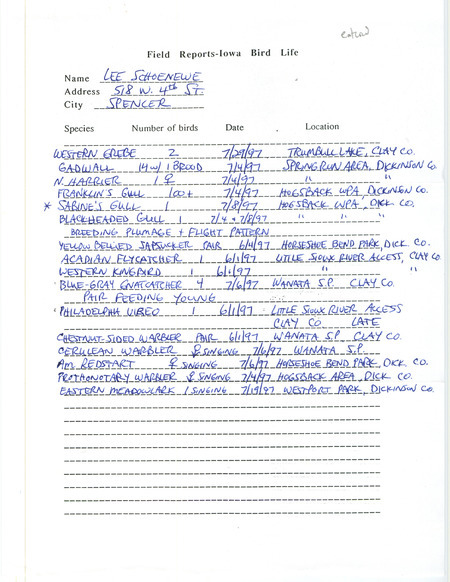 Field Reports-Iowa Bird Life
Name LEE SCHOENEWE
Address 518 W. 4th ST.
City SPENCER
Species Number of birds Date Location
WESTERN GREBE 2 7/29/97 TRUMBULL LAKE, CLAY CO.
GADWALL 14 w/ 1 BROOD 7/4/97 SPRING RUN AREA, DICKINSON CO.
N. HARRIER 1 ♀ 7/4/97 " "
FRANKLIN'S GULL 100+ 7/4/97 HOGSBACK WPA, DICKINSON CO.
* SABINE'S GULL 1 7/8/97 HOGSBACK WPA, DICK. CO.
BLACKHEADED GULL 1 7/4 + 7/8/97 " " "
BREEDING PLUMAGE + FLIGHT PATTERN
YELLOW BELLIED SAPSUCKER PAIR 6/4/97 HORSESHOE BEND PARK, DICK. CO.
ACADIAN FLYCATCHER 1 6/1/97 LITTLE SIOUX RIVER ACCESS, CLAY CO.
WESTERN KINGBIRD 1 6/1/97 " "
BLUE-GRAY GNATCATCHER 4 7/6/97 WANATA S.P. CLAY CO.
PAIR FEEDING YOUNG
PHILADELPHIA VIREO 1 6/1/97 LITTLE SIOUX RIVER ACCESS
CLAY CO LATE
CHESTNUT-SIDED WARBLER PAIR 6/1/97 WANATA S.P. CLAY CO.
CERULEAN WARBLER SINGING 7/6/97 WANATA S.P.
AM. REDSTART SINGING 7/6/97 HORSESHOE BEND PARK, DICK. CO.
PROTHONOTARY WARBLER SINGING 7/4/97 HOGSBACK AREA, DICK. CO.
EASTERN MEADOWLARK 1 SINGING 7/19/97 WESTPORT PARK, DICKINSON CO.